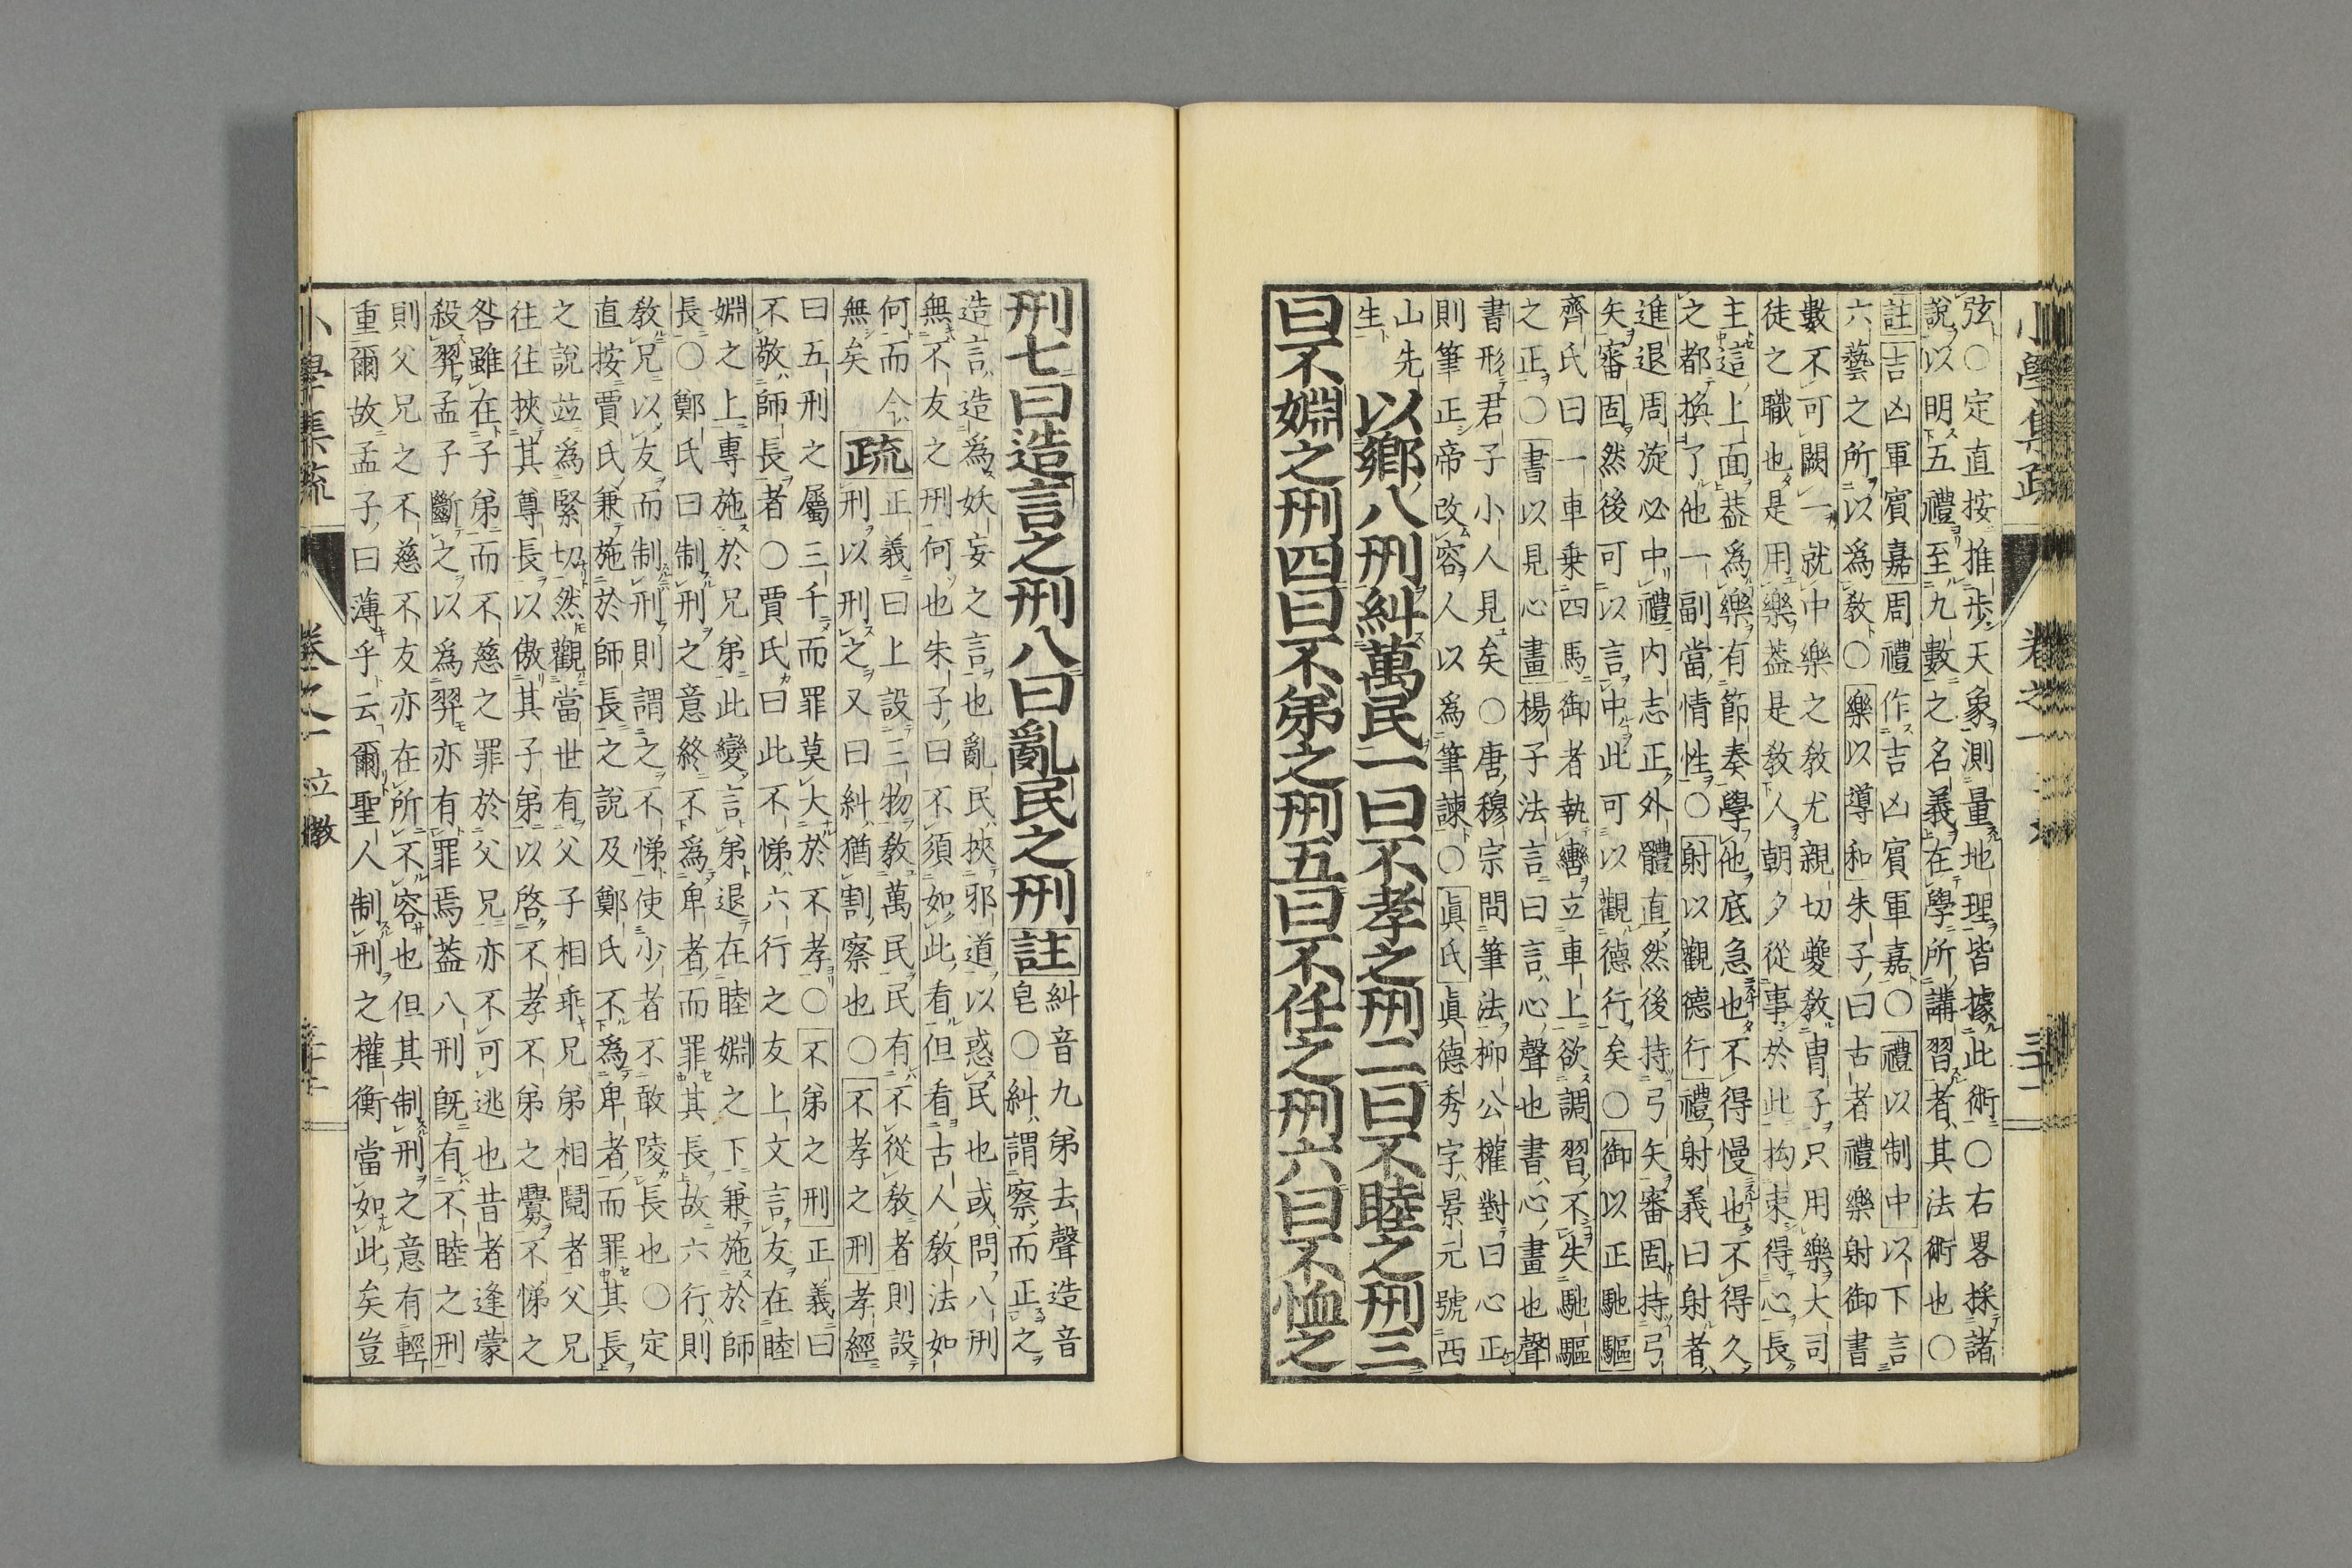 弦○定直按推步天象測量地理皆據此術○右畧採諸
說以明五禮至九數之名義在學所講習者其法術也○
註吉凶軍賓嘉周禮作吉凶賓軍嘉○禮以制中以下言
六藝之所以爲敎○樂以導和朱子曰古者禮樂射御書
數不可闕一就中樂之敎尤親切夔敎冑子只用樂大司
徒之職也是用樂蓋是敎人朝夕從事於此拘束得心長
主這上面蓋爲樂有節奏學他底急也不得慢也不得久
之都換了他一副當情性○射以觀德行禮射義曰射者
進退周旋必中禮內志正外體直然後持弓矢審固持弓
矢審固然後可以言中此可以觀德行矣○御以正馳驅
齊氏曰一車乗四馬御者執轡立車上欲調習不失馳驅
之正○書以見心畫楊子法言曰言心聲也書心畫也聲
書形君子小人見矣○唐穆宗問筆法柳公權對曰心正
則筆正帝改容人以爲筆諫○眞氏眞德秀字景元號西
山先
生
以鄉八刑糾萬民一曰不孝之刑二曰不睦之刑三
曰不婣之刑四曰不弟之刑五曰不任之刑六曰不恤之
刑七曰造言之刑八曰亂民之刑註糾音九弟去聲造音
皂○糾謂察而正之
造言造爲妖妄之言也亂民挾邪道以惑民也或問八刑
無不友之刑何也朱子曰不須如此看但看古人敎法如
何而今正義曰上設三物敎萬民民有不從敎者則設
無矣疏刑以刑之又曰糾猶割察也○不孝之刑孝經
曰五刑之屬三千而罪莫大於不孝○不弟之刑正義曰
不敬師長者○賈氏曰此不悌六行之友上文言友在睦
婣之上專施於兄弟此變言弟退在睦婣之下兼施於師
長○鄭氏曰制刑之意終不爲卑者而罪其長故六行則
敎兄以友而制刑則謂之不悌使少者不敢陵長也○定
直按賈氏兼施於師長之說及鄭氏不爲卑者而罪其長
之說竝爲緊切然觀當世有父子相乖兄弟相鬩者父兄
往往挾其尊長以傲其子弟以啓不孝不弟之釁不悌之
咎雖在子弟而不慈之罪於父兄亦不可逃也昔者逢蒙
殺羿孟子斷之以爲羿亦有罪焉蓋八刑旣有不睦之刑
則父兄之不慈不友亦在所不容也但其制刑之意有輕
重爾故孟子曰薄乎云爾聖人制刑之權衡當如此矣豈
小學集疏
卷之一
立敎